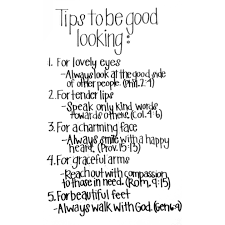 Tips to be good
looking:
1. For lovely eyes
-Always look at the good side
of other people. (Phil. 2:4)
2. For tender lips
-Speak only kind words
towards others. (Col. 4:6)
3. For a charming face
-Always smile with a happy
heart. (Prov. 15:13)
4. For graceful arms
-Reach out with compassion
to those in need. (Rom. 9:15)
5. For beautiful feet
-Always walk with God. (Gen 6:9)